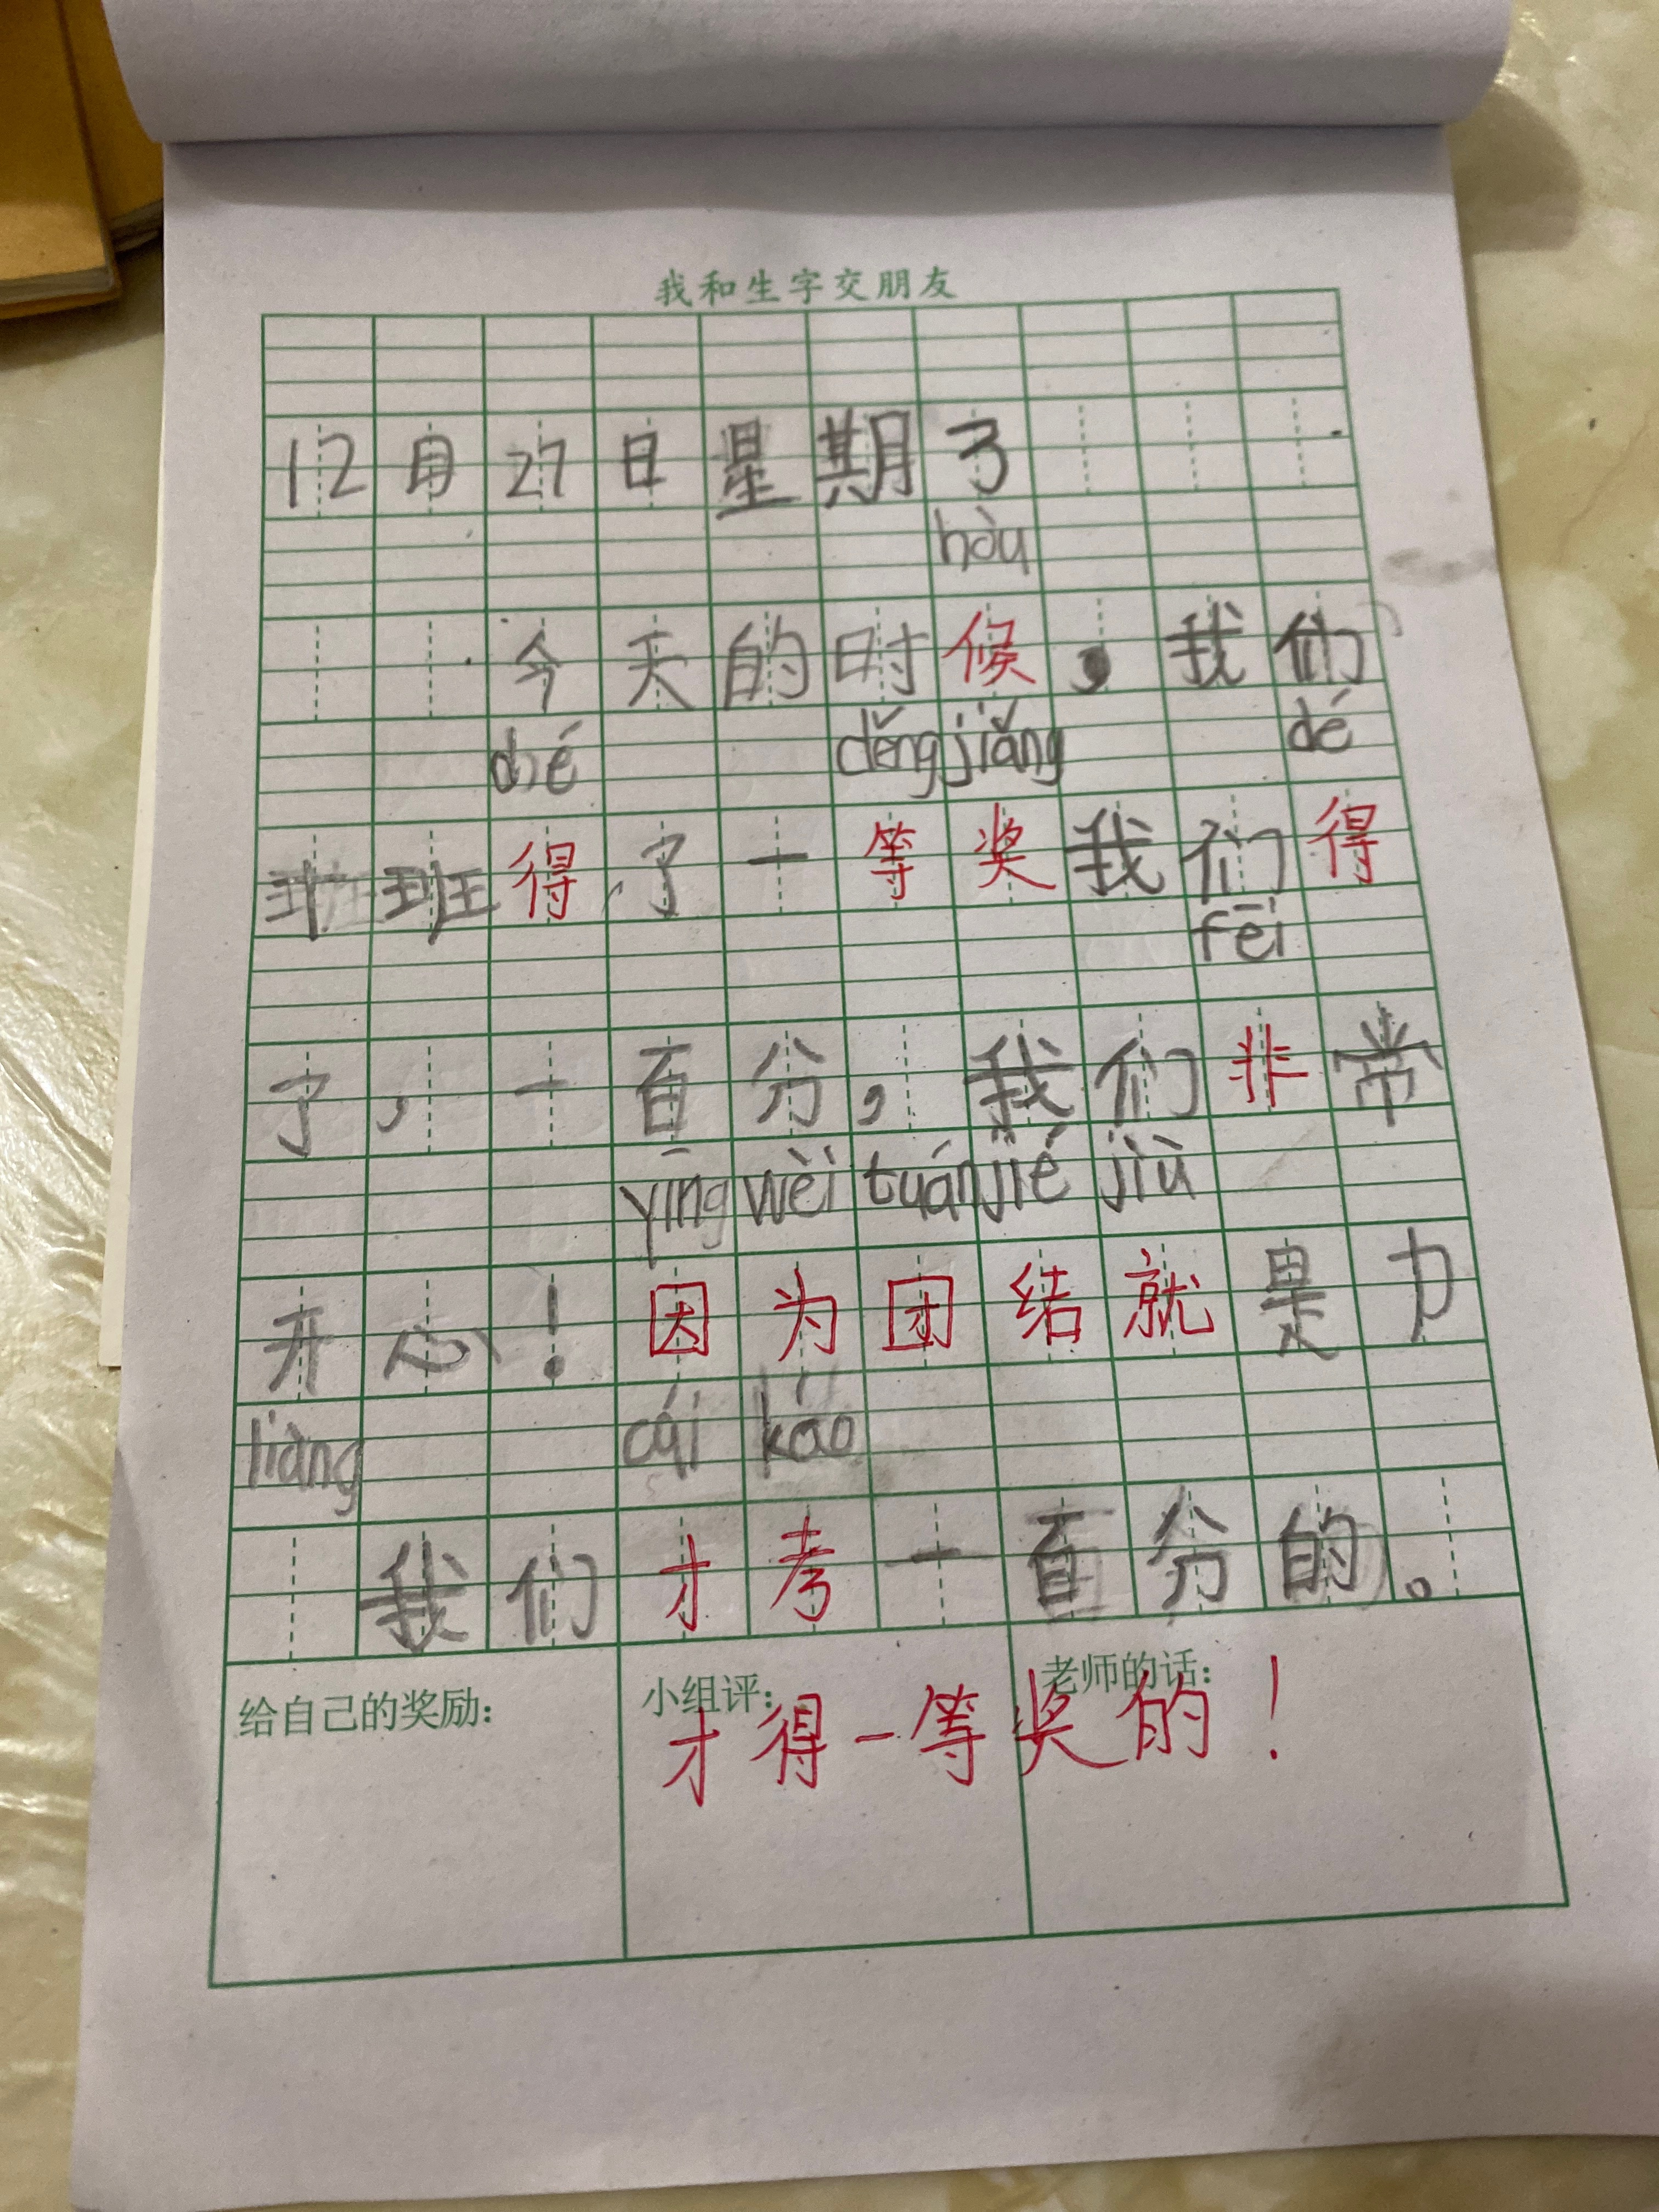 我和生字交朋友
12月27日星期3
hòu
今天的时候，我们
dé děng jiǎng dé
班班得了一等奖我们得
fēi
了，一百分，我们非常
yīng wèi tuán jié jiù
开心！因为团结就是力
liàng cái kǎo
我们才考一百分的。
给自己的奖励：
小组评：
老师的话：
才得一等奖的！